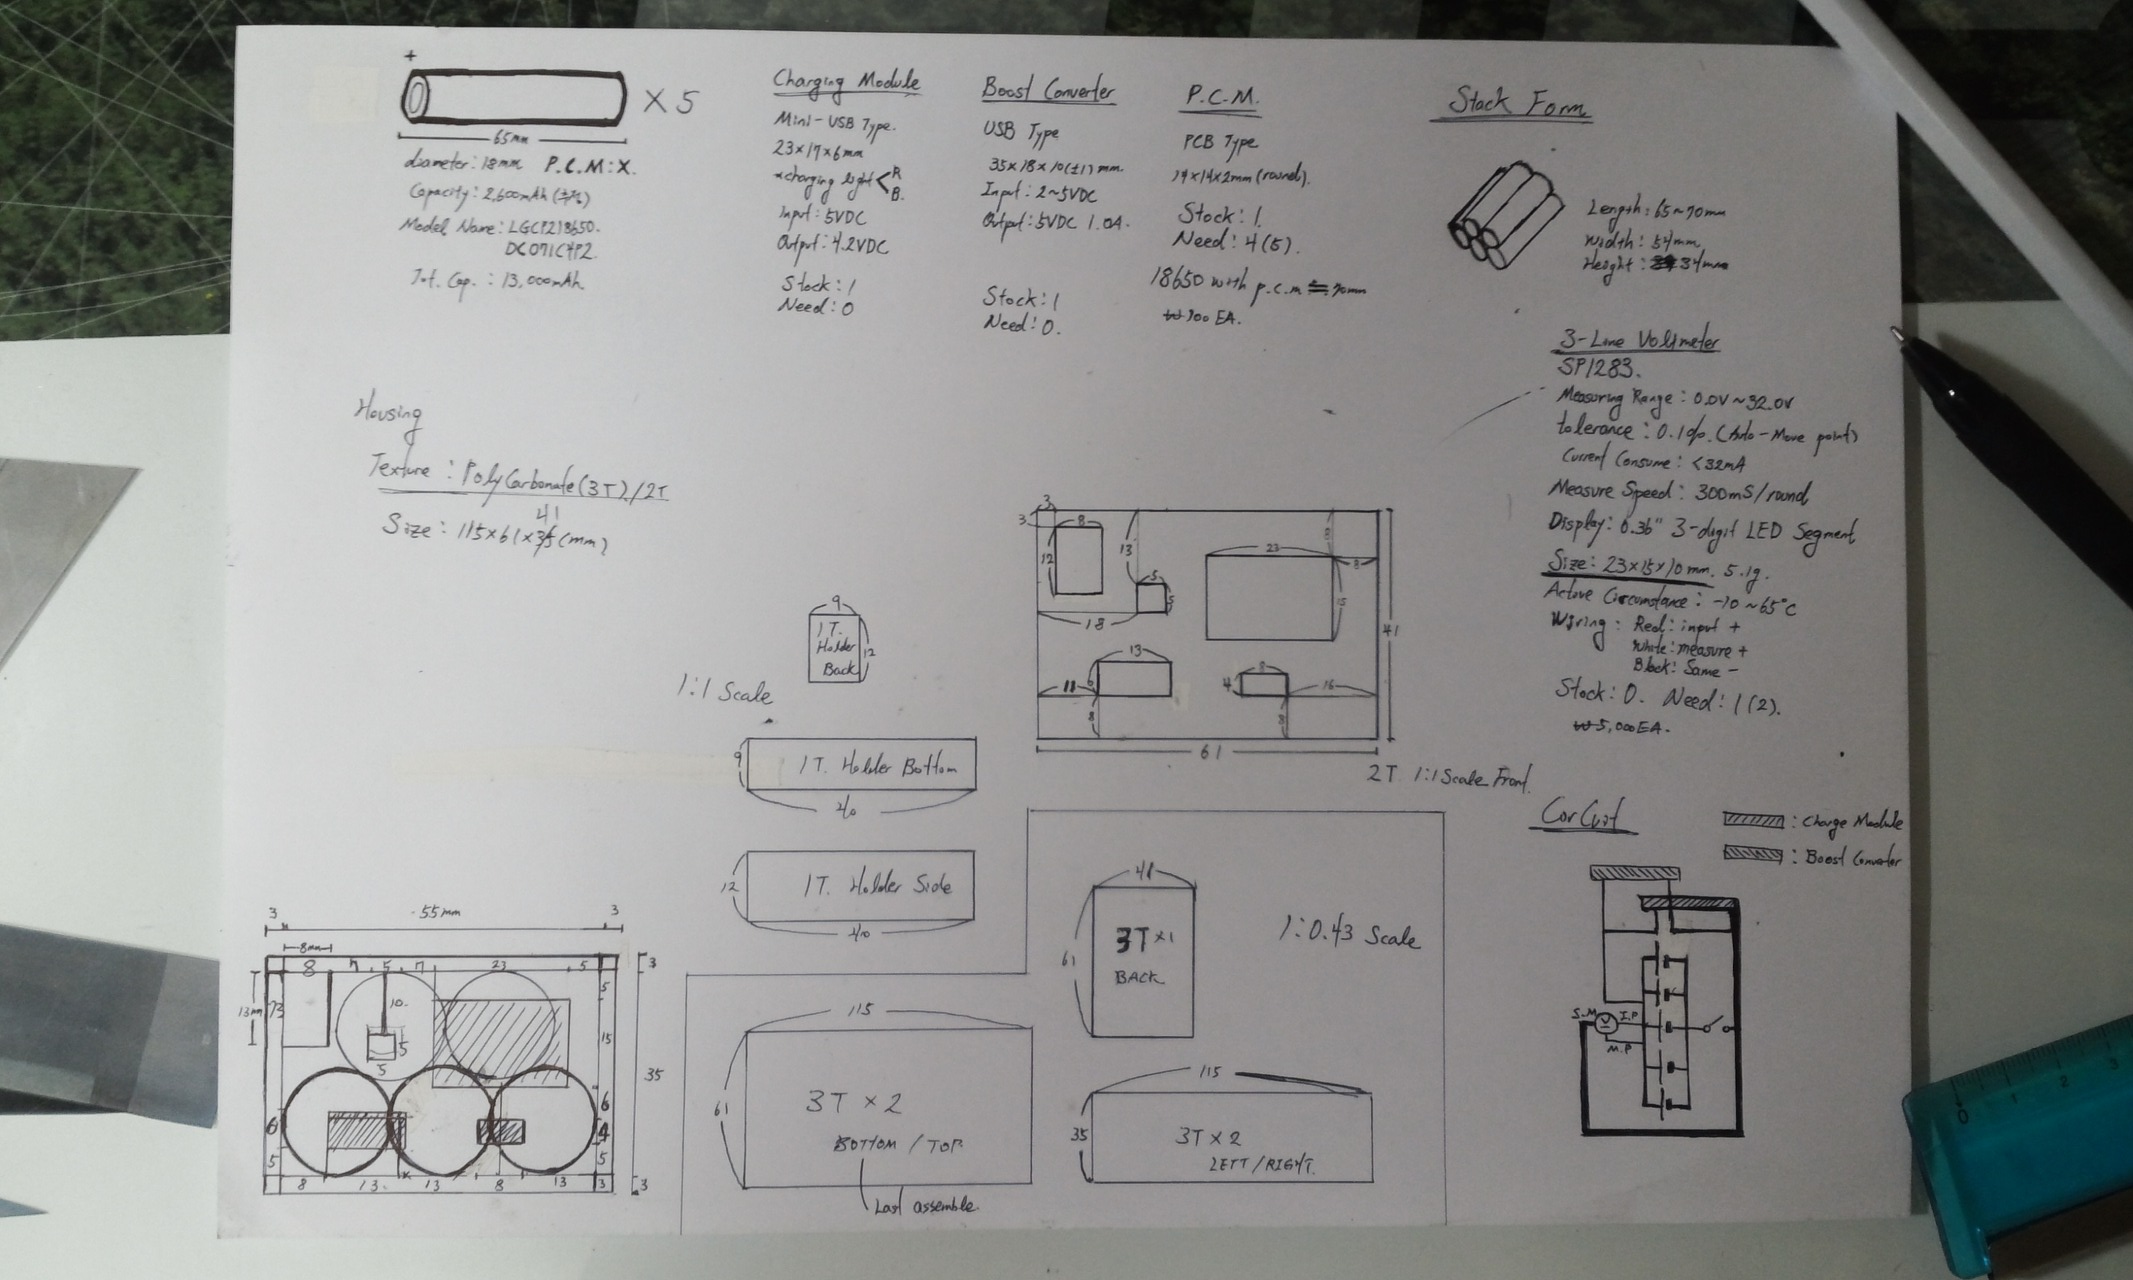 +
X 5
65mm
diameter: 18mm P.C.M: X.
Capacity: 2,600mAh
Model Name: LGCP218650.
DC071C4P2.
Tot. Cap. : 13,000mAh.
Charging Module
Mini-USB Type.
23×17×6mm
*charging light < R
B.
Input: 5VDC
Output: 4.2VDC
Stock: 1
Need: 0
Boost Converter
USB Type
35×18×10(±1)mm.
Input: 2~5VDC
Output: 5VDC 1.0A.
Stock: 1
Need: 0.
P.C.M.
PCB Type
14×14×2mm (round).
Stock: 1.
Need: 4(5).
18650 with p.c.m ≒ 70mm
₩700 EA.
Stack Form
Length: 65~70mm
Width: 54mm
Height: 34mm
3-Line Voltmeter
SP1283.
Measuring Range: 0.0V~32.0V
tolerance: 0.1%. (Auto-Move point)
Current Consume: <32mA
Measure Speed: 300mS/round
Display: 0.36" 3-digit LED Segment
Size: 23×15×10mm. 5.1g.
Active Circumstance: -10~65°C
Wiring: Red: input +
White: measure +
Black: Same -
Stock: 0. Need: 1(2).
₩5,000EA.
Housing
Texture : PolyCarbonate(3T)./2T
41
Size: 115×61×35(mm)
9
1T.
Holder
Back
12
1:1 Scale
9
1T. Holder Bottom
40
12
1T. Holder Side
40
3
3
8
12
13
5
5
18
23
8
8
15
41
13
11
6
8
8
4
16
8
61
2T 1:1 Scale Front.
55mm
3
3
8mm
8
7
5
7
23
5
3
13mm
13
10.
5
5
5
15
35
6
6
4
5
5
8
13.
13
8
13
3
3
41
61
3T ×1
BACK
1:0.43 Scale
115
61
3T × 2
BOTTOM / TOP.
Last assemble.
115
35
3T × 2
LEFT/RIGHT.
CorCuot
: Charge Module
: Boost Converter
S.M
V
I.P
M.P
0
1
2
3